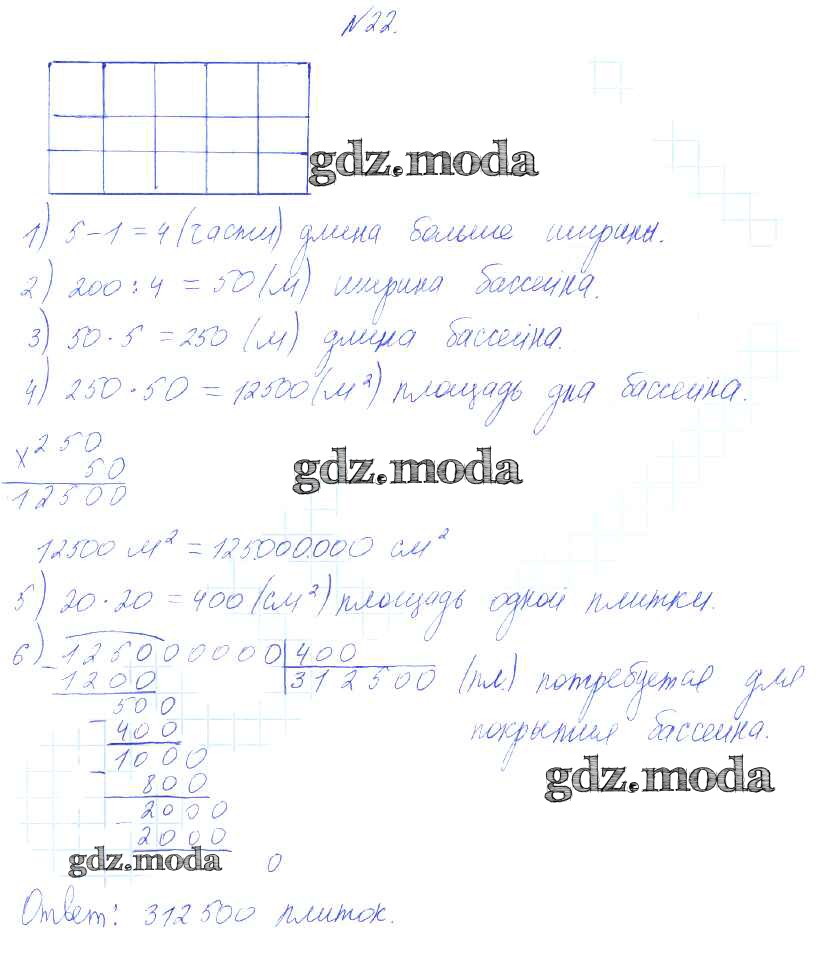 №22.
gdz.moda
1) 5-1=4 (части) длина больше ширины.
2) 200:4=50(м) ширина бассейна.
3) 50·5=250 (м) длина бассейна.
4) 250·50=12500(м²) площадь дна бассейна.
x 250
50
12500
gdz.moda
12500 м² = 125000000 см²
5) 20·20=400(см²) площадь одной плитки.
6) 125000000 400
1200 312500 (пл.) потребуется для
500 покрытия бассейна.
- 400
1000
- 800
gdz.moda
- 2000
2000
gdz.moda 0
Ответ: 312500 плиток.